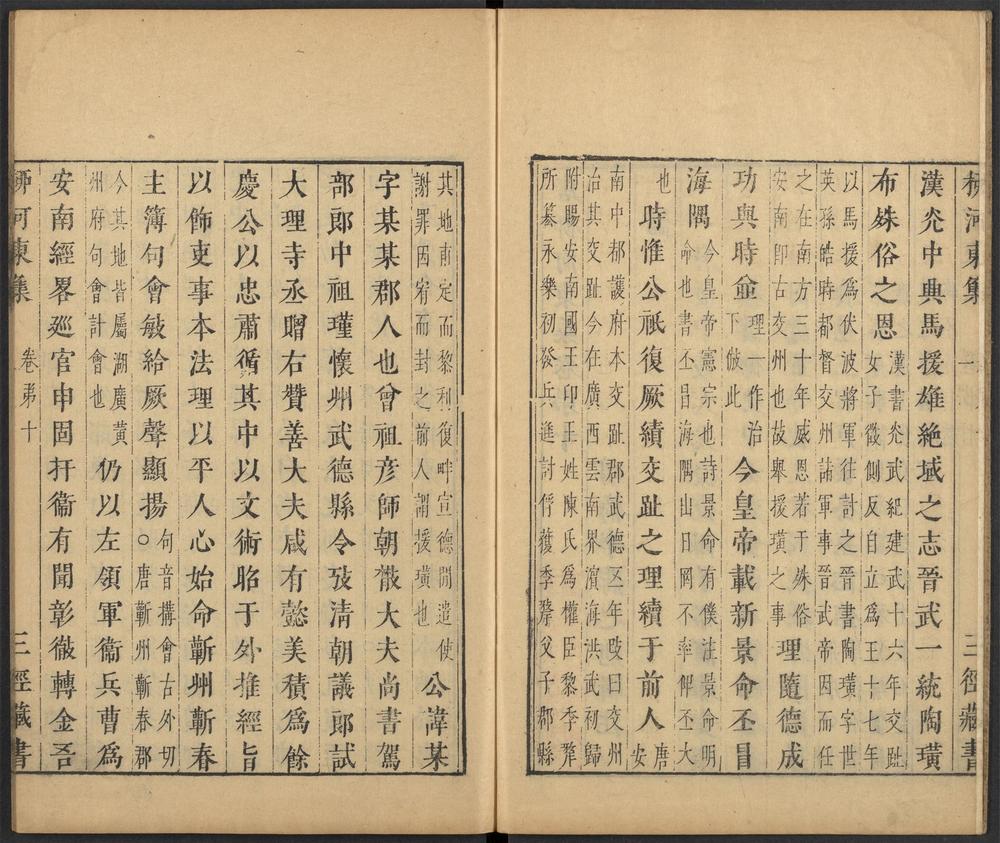 柳河東集
三徑藏書
漢光中興馬援雄絶域之志晉武一統陶璜
布殊俗之恩漢書光武紀建武十六年交趾
女子徵側反自立爲王十七年
以馬援爲伏波將軍往討之晉書陶璜字世
英孫皓時都督交州諸軍事晉武帝因而任
之在南方三十年威恩若于殊俗
安南卽古交州也故舉援璜之事理隨德成
功與時並理一作治
下倣此今皇帝載新景命丕冒
海隅今皇帝憲宗也詩景命有僕注景命明
命也書丕冒海隅出日罔不率俾丕大
也時惟公祇復厥績交趾之理續于前人唐
安
南中都護府本交趾郡武德五年改曰交州
治其交趾今在廣西雲南界濱海洪武初歸
附賜安南國王印王姓陳氏爲權臣黎季犛
所簒永樂初發兵進討俘獲季犛父子郡縣
其地甫定而黎利復畔宣德間遣使
謝罪因宥而封之前人謂援璜也公諱某
字某某郡人也曾祖彦師朝散大夫尚書駕
部郎中祖瑾懷州武德縣令考清朝議郎試
大理寺丞贈右贊善大夫咸有懿美積爲餘
慶公以忠肅循其中以文術昭于外推經旨
以飾吏事本法理以平人心始命蘄州蘄春
主簿句會敏給厥聲顯揚○句音搆會古外切
唐蘄州蘄春郡
今其地皆屬湖廣黃
州府句會計會也仍以左領軍衞兵曹爲
安南經畧巡官申固扞衞有聞彰徹轉金吾
柳河東集
卷苐十
三徑藏書